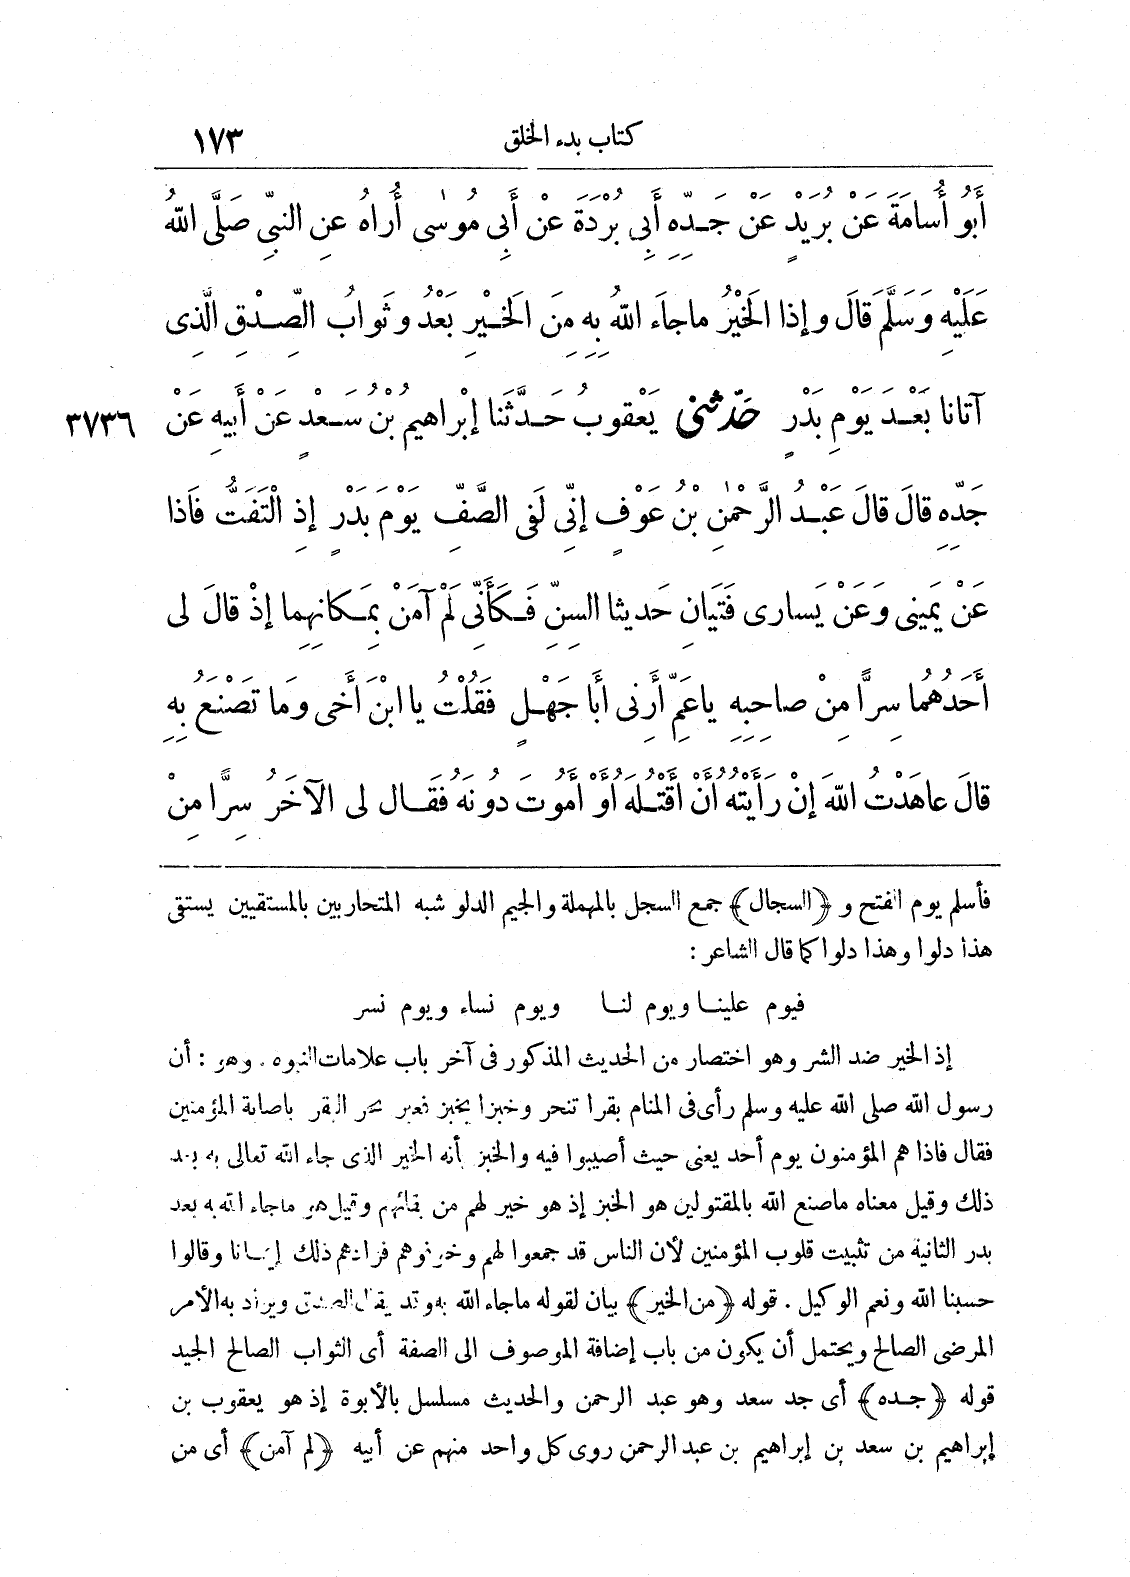 كتاب بدء الخلق ١٧٣
أَبُو أُسَامَةَ عَنْ بُرَيْدٍ عَنْ جَدِّهِ أَبِى بُرْدَةَ عَنْ أَبِى مُوسَى أُرَاهُ عَنِ النبىِّ صَلَّى اللهُ
عَلَيْهِ وَسَلَّمَ قَالَ وإذا الخَيْرُ ماجاَء اللهُ بِهِ مِنَ الخَيْرِ بَعْدُ وثَوابُ الصِّدْقِ الَّذِى
٣٧٣٦ آتانا بَعْدَ يَوْمِ بَدْرٍ حَدَّثَنِى يَعْقُوبُ حَدَّثَنا إبْراهِيمُ بْنُ سَعْدٍ عَنْ أَبِيهِ عَنْ
جَدِّهِ قالَ قالَ عَبْدُ الرَّحْمٰنِ بْنُ عَوْفٍ إنِّى لَفِى الصَّفِّ يَوْمَ بَدْرٍ إذِ الْتَفَتُّ فَاذا
عَنْ يَمِينى وَعَنْ يَسارى فَتَيانِ حَدِيثا السِنِّ فَكَأَنِّى لَمْ آمَنْ بِمَكانِهِما إذْ قالَ لى
أَحَدُهُما سِرًّا مِنْ صاحِبِهِ ياعَمِّ أَرِنِى أَبا جَهْلٍ فَقُلْتُ يا ابْنَ أَخى وَما تَصْنَعُ بِهِ
قالَ عاهَدْتُ اللهَ إنْ رَأَيْتُهُ أَنْ أَقْتُلَهُ أَوْ أَمُوتَ دُونَهُ فَقَال لى الآخَرُ سِرًّا مِنْ
فأسلم يوم الفتح و ﴿السجال﴾ جمع السجل بالمهملة والجيم الدلو شبه المتحاربين بالمستقيين يستقى
هذا دلوا وهذا دلوا كما قال الشاعر :
فيوم علينا ويوم لنا ويوم نساء ويوم نسر
إذ الخير ضد الشر وهو اختصار من الحديث المذكور فى آخر باب علامات النبوة . وهو : أن
رسول الله صلى الله عليه وسلم رأى فى المنام بقرا تنحر وخبزا يخبز فعبر نحر البقر باصابة المؤمنين
فقال فاذا هم المؤمنون يوم أحد يعنى حيث أصيبوا فيه والخبز بأنه الخير الذى جاء الله تعالى به بعد
ذلك وقيل معناه ماصنع الله بالمقتولين هو الخبز إذ هو خير لهم من بقائهم وقيل هو ماجاء الله به بعد
بدر الثانية من تثبيت قلوب المؤمنين لأن الناس قد جمعوا لهم وخوفوهم فزادهم ذلك إيمانا وقالوا
حسبنا الله ونعم الوكيل . قوله ﴿من الخير﴾ بيان لقوله ماجاء الله به وقد يقال الصدق ويراد به الأمر
المرضى الصالح ويحتمل أن يكون من باب إضافة الموصوف الى الصفة أى الثواب الصالح الجيد
قوله ﴿جده﴾ أى جد سعد وهو عبد الرحمن والحديث مسلسل بالأبوة إذ هو يعقوب بن
إبراهيم بن سعد بن إبراهيم بن عبد الرحمن روى كل واحد منهم عن أبيه ﴿لم آمن﴾ أى من